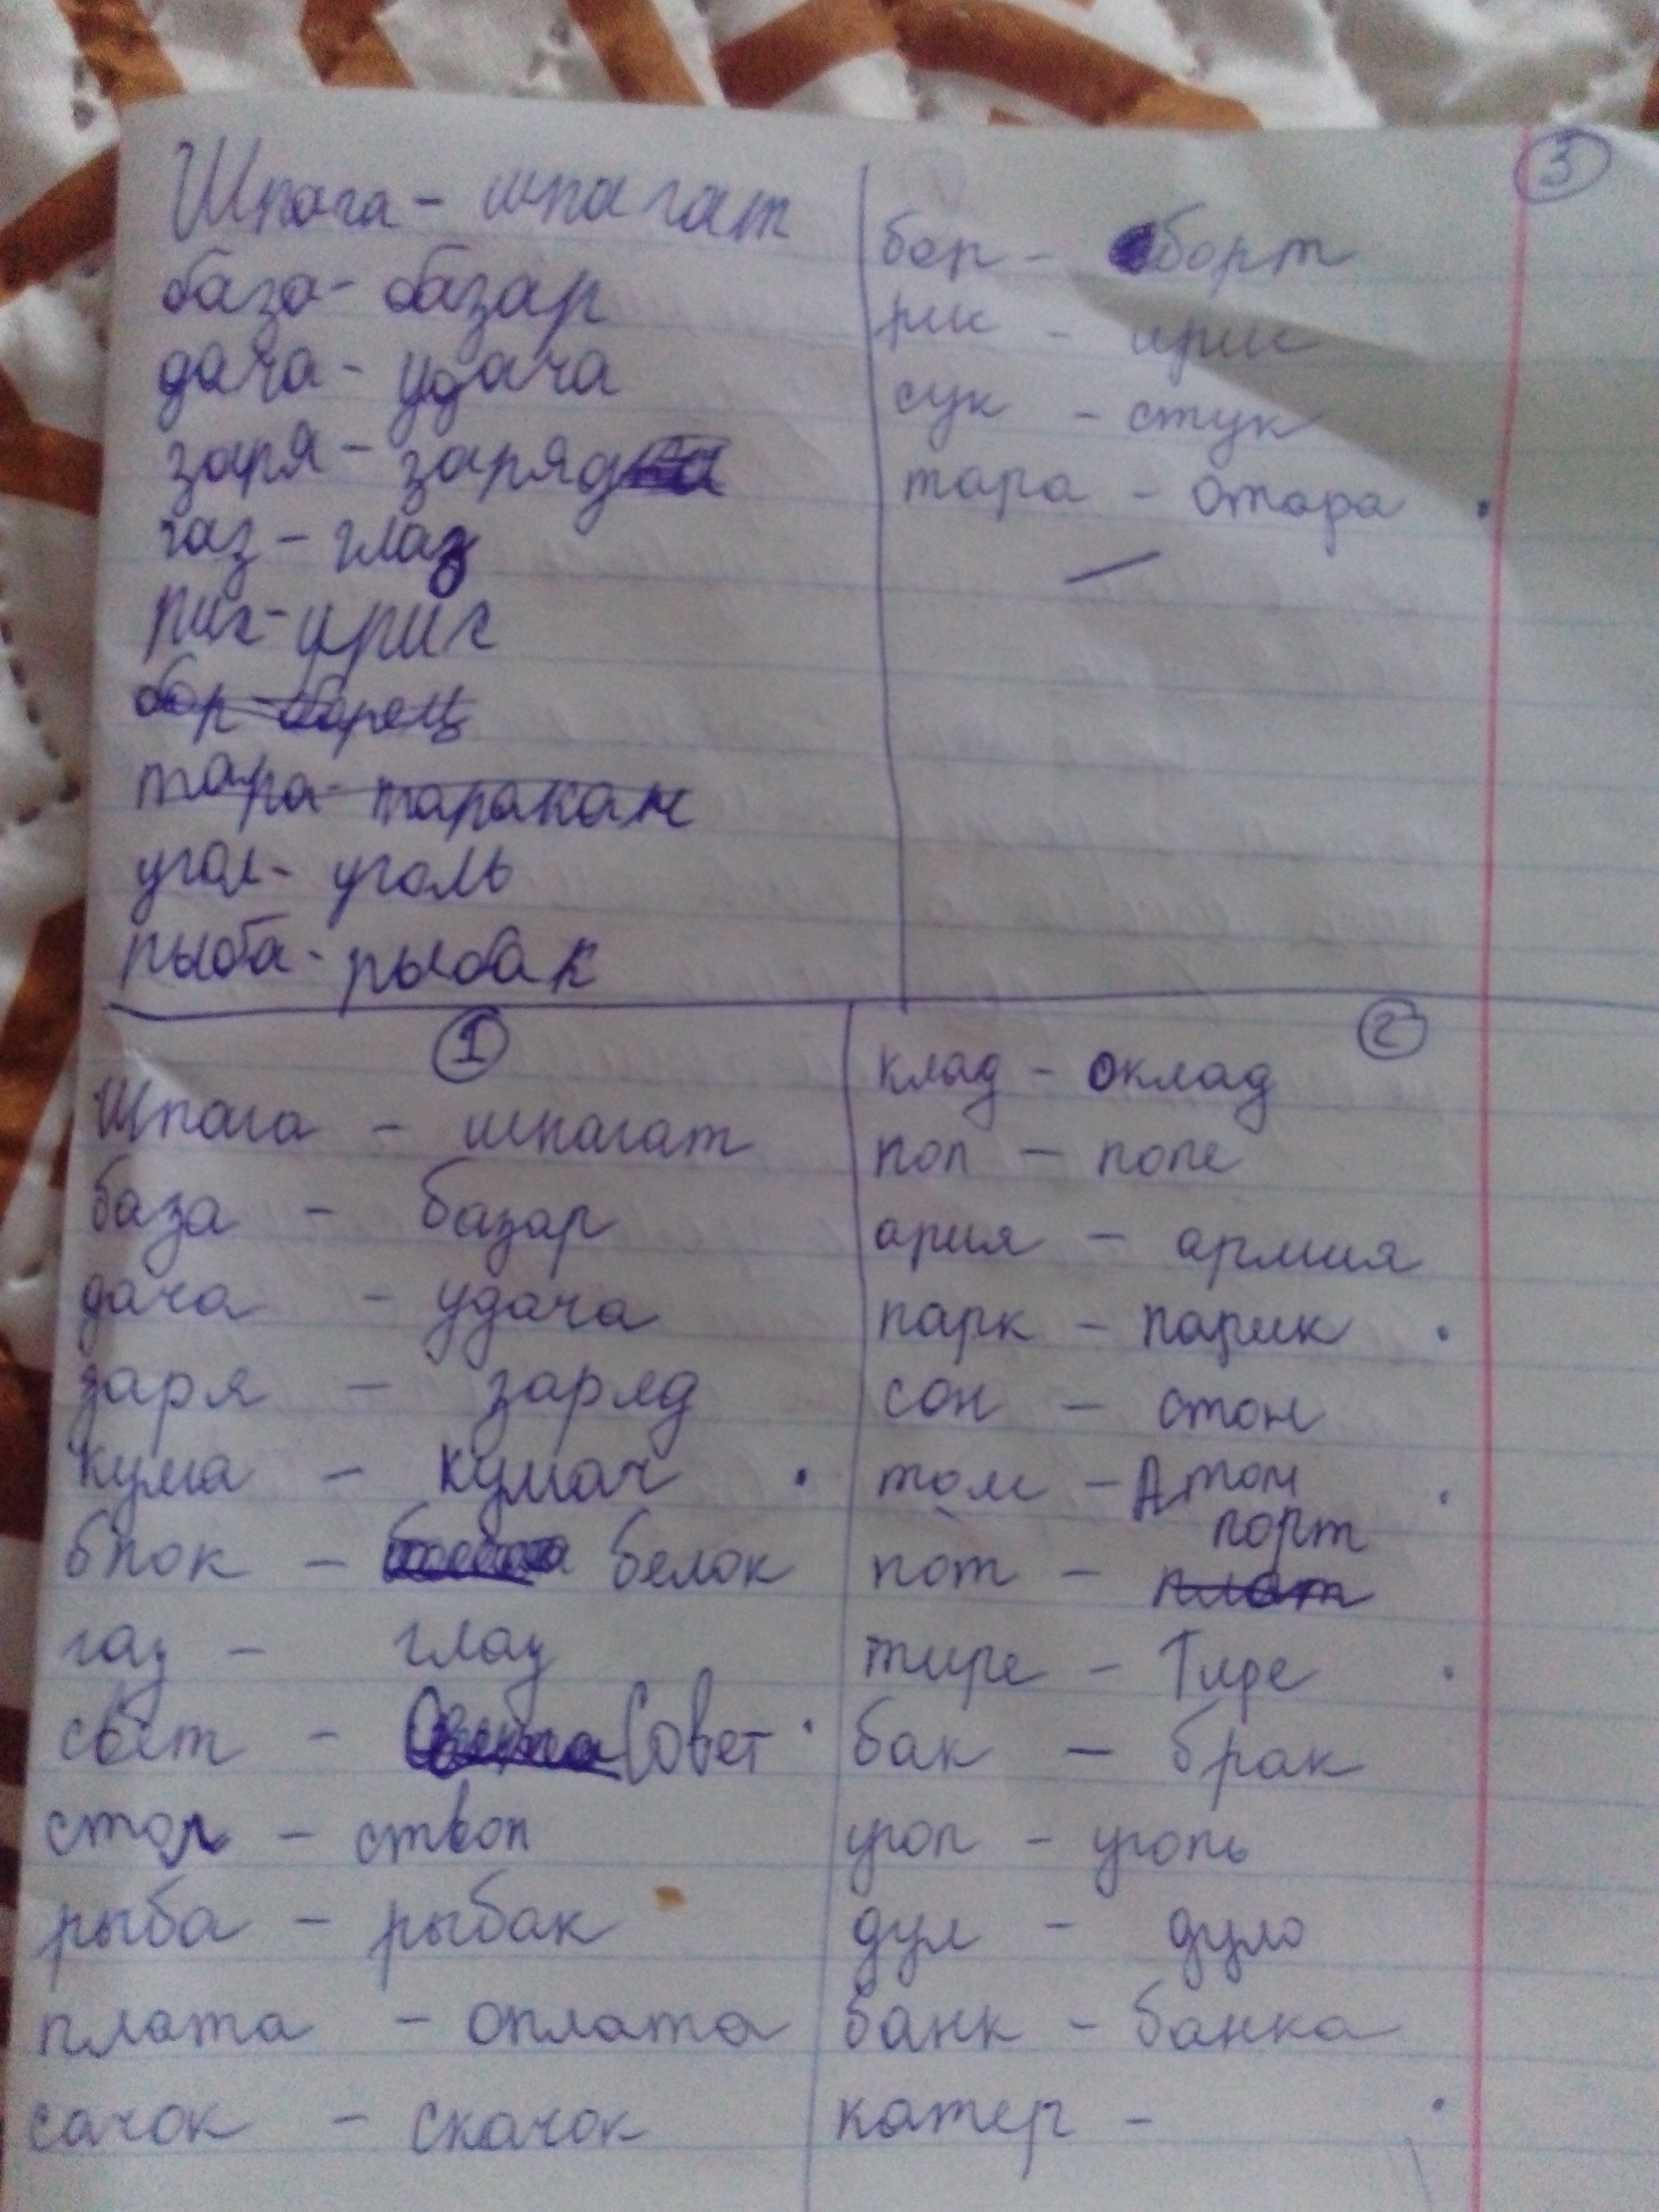 Шпага - шпагат
база - базар
дача - удача
заря - заряд
газ - глаз
рис - ирис
бор - борец
тара - таракан
угол - уголь
рыба - рыбак
3
бор - борт
рис - ирис
сук - стук
тара - отара
1
Шпага - шпагат
база - базар
дача - удача
заря - заряд
кума - кумач
блок - белок
газ - глаз
свет - Совет
стол - ствол
рыба - рыбак
плата - оплата
сачок - скачок
2
клад - оклад
пол - поле
ария - армия
парк - парик
сон - стон
том - Атом
порт
пот - плот
тире - Тигре
бак - брак
угол - уголь
дул - дуло
банк - банка
катер -